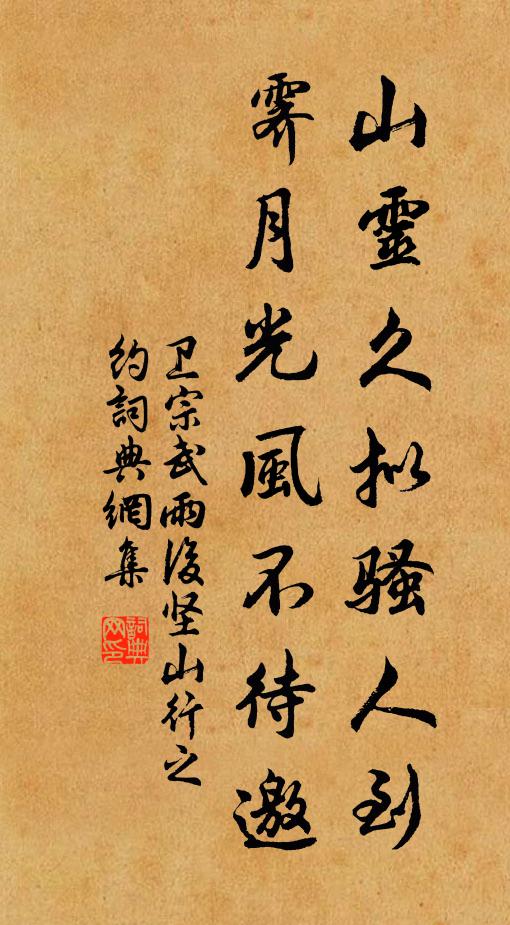 山靈久拟騷人到
霽月光風不待邀
卫宗武雨後坚山行之
约詞典網集
詞典
网印